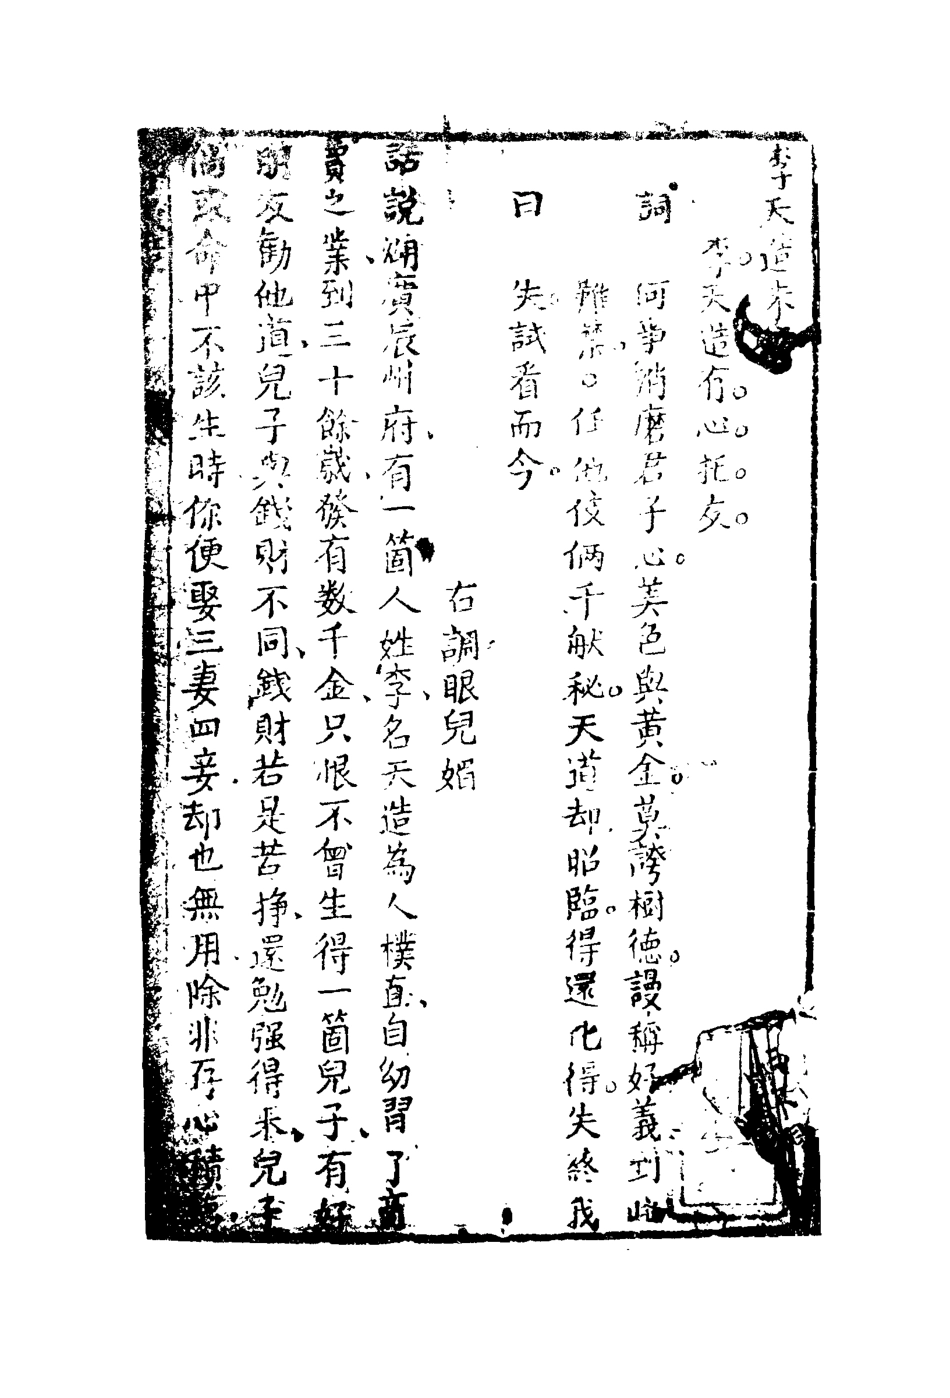 李天造
李天造有心托友
詞 何事消磨君子心美色與黃金莫誇樹德謾稱好義到
難禁○任他伎倆千般秘天道却昭臨得還化得失終我
曰 失試看而今
右調眼兒媚
話說湖廣辰州府有一箇人姓李名天造為人樸直自幼習了商
賣之業到三十餘歲發有数千金只恨不曾生得一箇兒子有好
朋友勸他道兒子與錢財不同錢財若是苦掙還勉强得来兒子
倘或命中不該生時你便娶三妻四妾却也無用除非存心積